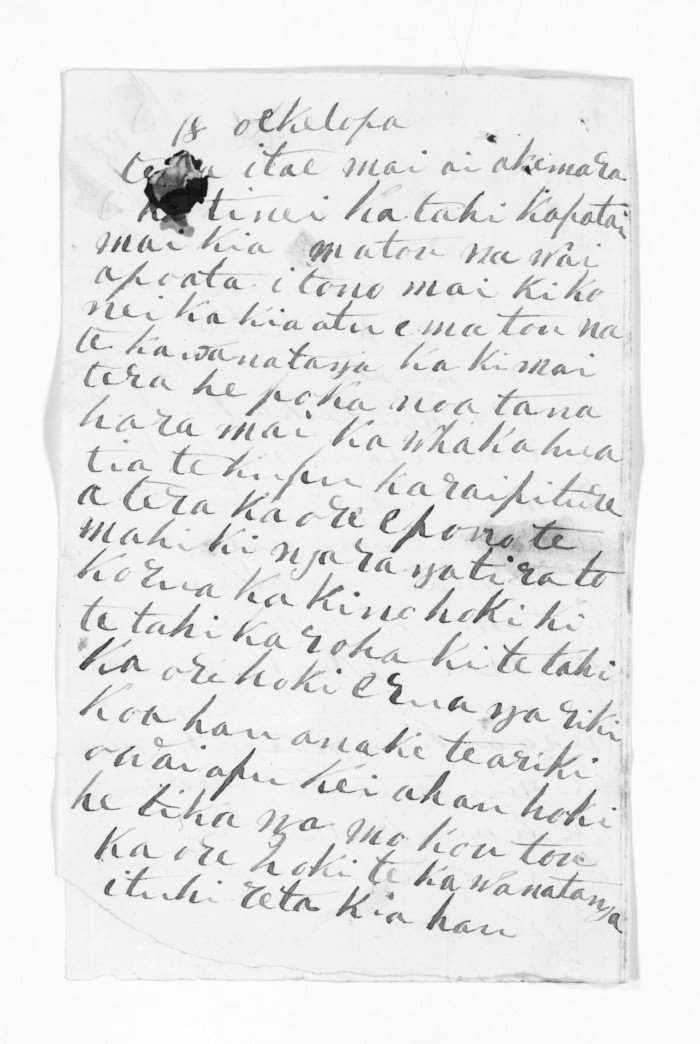 18 ockelopa
itae mai ai akemara
tinei ka taki kapatai
mai kia matou na wai
apoata i tono mai ki ko
nei ka kia atu e matou na
te kawanatanga ka ki mai
tera he poka noa tana
hara mai ka whakahua
tia te kupu karaipiture
a tera ka ore e pono te
mahi ki nga ra ngatira to
korua ka kino hoki ki
te tahi ka roha ki te tahi
ka ore hoki e rua nga riki
koa hau anake te ariki
o waiapu kei ahau hoki
he tika nga mo koutou
ka ore hoki te kawanatanga
i tuhi reta kia hau